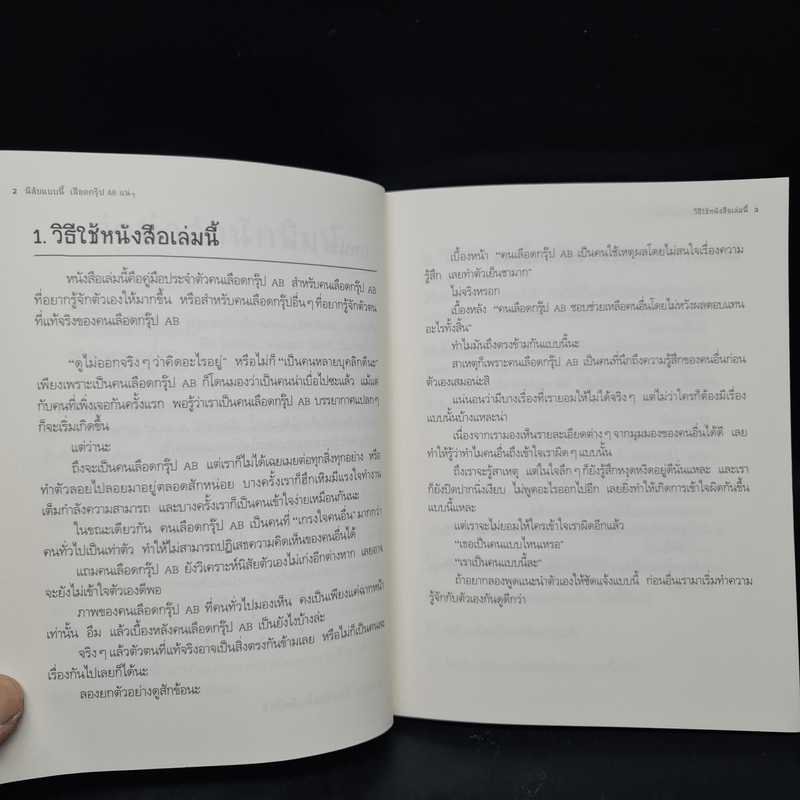 2 นิสัยแบบนี้ เลือดกรุ๊ป AB แน่ๆ
1. วิธีใช้หนังสือเล่มนี้
หนังสือเล่มนี้คือคู่มือประจำตัวคนเลือดกรุ๊ป AB สำหรับคนเลือดกรุ๊ป AB
ที่อยากรู้จักตัวเองให้มากขึ้น หรือสำหรับคนเลือดกรุ๊ปอื่นๆ ที่อยากรู้จักตัวตน
ที่แท้จริงของคนเลือดกรุ๊ป AB
"ดูไม่ออกจริงๆ ว่าคิดอะไรอยู่" หรือไม่ก็ "เป็นคนหลายบุคลิกดีนะ"
เพียงเพราะเป็นคนเลือดกรุ๊ป AB ก็โดนมองว่าเป็นคนน่าเบื่อไปซะแล้ว แม้แต่
กับคนที่เพิ่งเจอกันครั้งแรก พอรู้ว่าเราเป็นคนเลือดกรุ๊ป AB บรรยากาศแปลกๆ
ก็จะเริ่มเกิดขึ้น
แต่ว่านะ
ถึงจะเป็นคนเลือดกรุ๊ป AB แต่เราก็ไม่ได้เฉยเมยต่อทุกสิ่งทุกอย่าง หรือ
ทำตัวลอยไปลอยมาอยู่ตลอดสักหน่อย บางครั้งเราก็ฮึกเหิมมีแรงใจทำงาน
เต็มกำลังความสามารถ และบางครั้งเราก็เป็นคนเข้าใจง่ายเหมือนกันนะ
ในขณะเดียวกัน คนเลือดกรุ๊ป AB เป็นคนที่ "เกรงใจคนอื่น" มากกว่า
คนทั่วไปเป็นเท่าตัว ทำให้ไม่สามารถปฏิเสธความคิดเห็นของคนอื่นได้
แถมคนเลือดกรุ๊ป AB ยังวิเคราะห์นิสัยตัวเองไม่เก่งอีกต่างหาก เลยอาจ
จะยังไม่เข้าใจตัวเองดีพอ
ภาพของคนเลือดกรุ๊ป AB ที่คนทั่วไปมองเห็น คงเป็นเพียงแค่ฉากหน้า
เท่านั้น อืม แล้วเบื้องหลังคนเลือดกรุ๊ป AB เป็นยังไงบ้างล่ะ
จริงๆ แล้วตัวตนที่แท้จริงอาจเป็นสิ่งตรงกันข้ามเลย หรือไม่ก็เป็นคนละ
เรื่องกันไปเลยก็ได้นะ
ลองยกตัวอย่างดูสักข้อนะ
วิธีใช้หนังสือเล่มนี้ 3
เบื้องหน้า "คนเลือดกรุ๊ป AB เป็นคนใช้เหตุผลโดยไม่สนใจเรื่องความ
รู้สึก เลยทำตัวเย็นชามาก"
ไม่จริงหรอก
เบื้องหลัง "คนเลือดกรุ๊ป AB ชอบช่วยเหลือคนอื่นโดยไม่หวังผลตอบแทน
อะไรทั้งสิ้น"
ทำไมมันถึงตรงข้ามกันแบบนี้นะ
สาเหตุก็เพราะคนเลือดกรุ๊ป AB เป็นคนที่นึกถึงความรู้สึกของคนอื่นก่อน
ตัวเองเสมอน่ะสิ
แน่นอนว่ามีบางเรื่องที่เรายอมให้ไม่ได้จริงๆ แต่ไม่ว่าใครก็ต้องมีเรื่อง
แบบนั้นบ้างแหละน่า
เนื่องจากเรามองเห็นรายละเอียดต่างๆ จากมุมมองของคนอื่นได้ดี เลย
ทำให้รู้ว่าทำไมคนอื่นถึงเข้าใจเราผิดๆ แบบนั้น
ถึงเราจะรู้สาเหตุ แต่ในใจลึกๆ ก็ยังรู้สึกหงุดหงิดอยู่ดีนั่นแหละ และเรา
ก็ยังปิดปากนิ่งเงียบ ไม่พูดอะไรออกไปอีก เลยยิ่งทำให้เกิดการเข้าใจผิดกันขึ้น
แบบนี้แหละ
แต่เราจะไม่ยอมให้ใครเข้าใจเราผิดอีกแล้ว
"เธอเป็นคนแบบไหนเหรอ"
"เราเป็นคนแบบนี้ละ"
ถ้าอยากลองพูดแนะนำตัวเองให้ชัดแจ้งแบบนี้ ก่อนอื่นเรามาเริ่มทำความ
รู้จักกับตัวเองกันดูดีกว่า